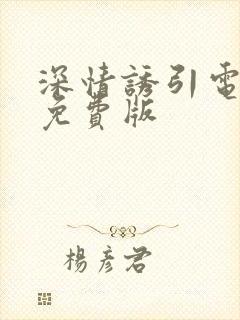 深情誘引電
免費版
楊彥君